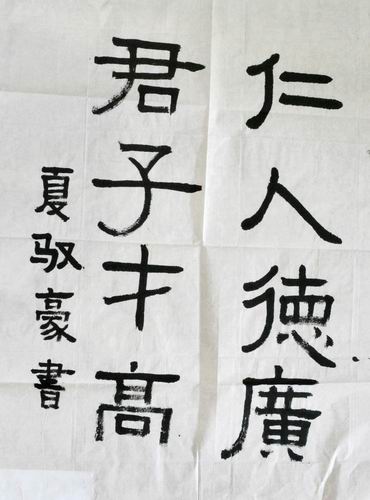 仁人德廣
君子才高
夏驭豪書